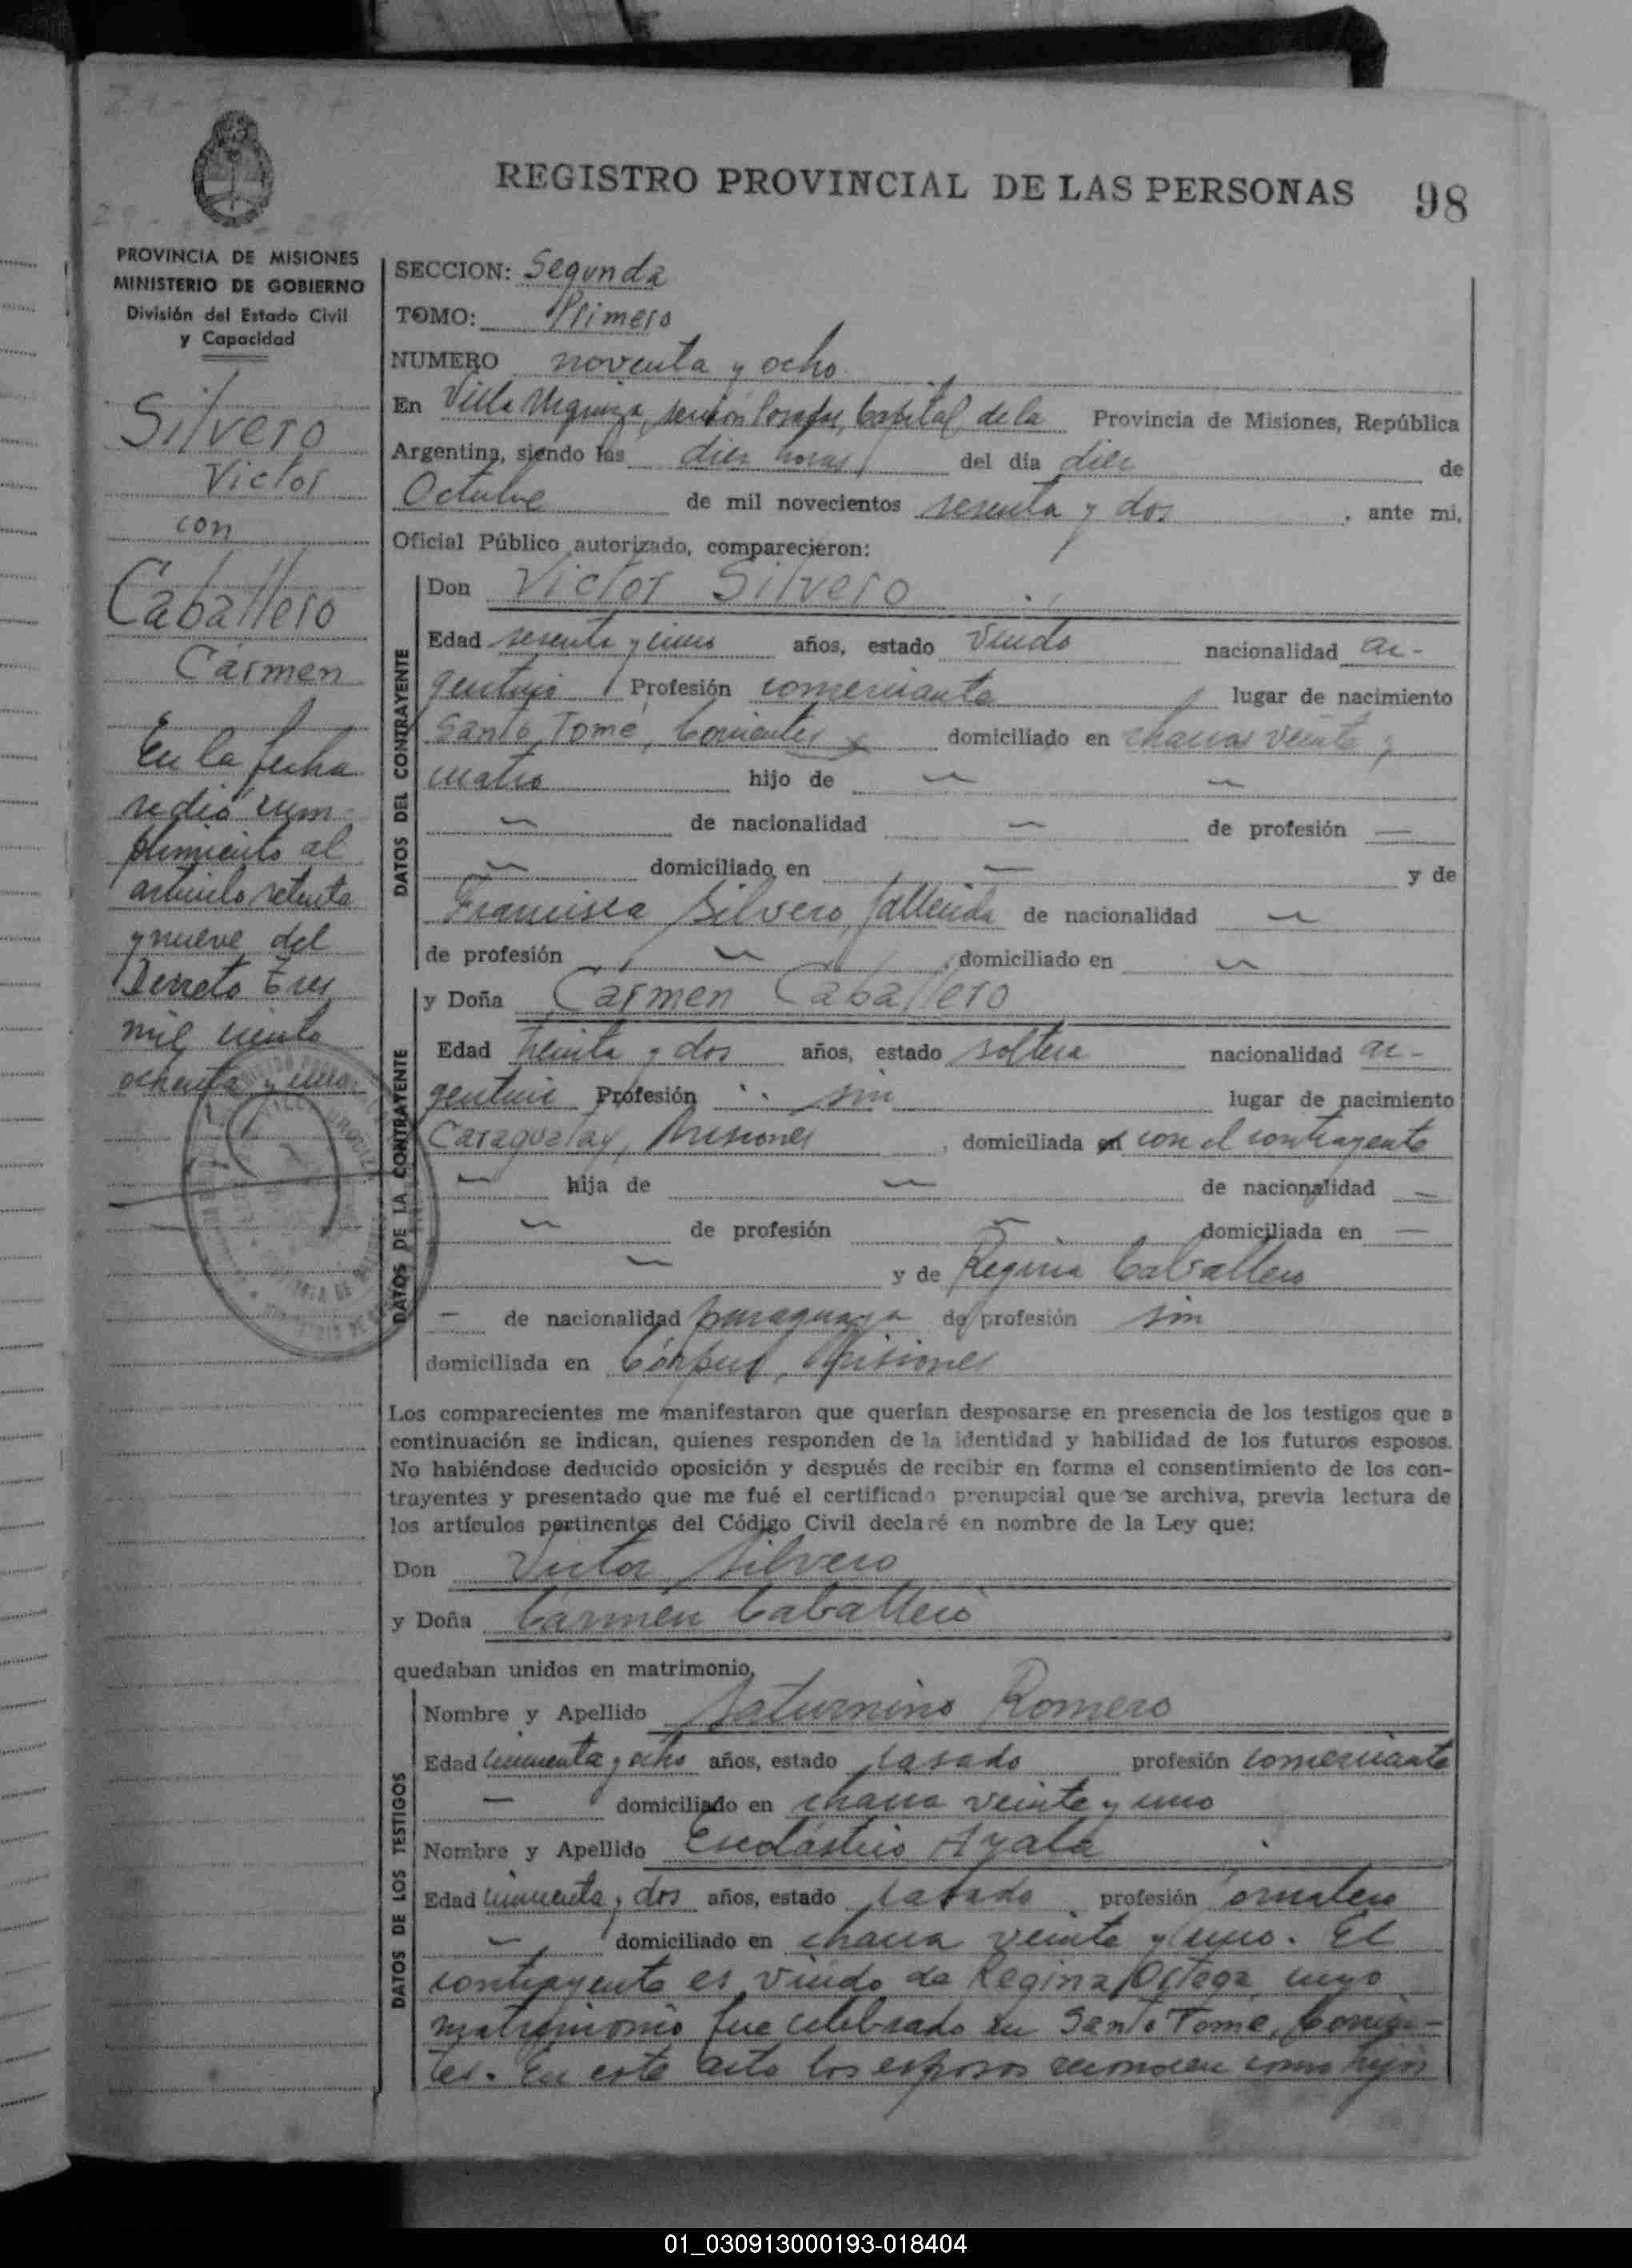 REGISTRO PROVINCIAL DE LAS PERSONAS 98
PROVINCIA DE MISIONES
MINISTERIO DE GOBIERNO
División del Estado Civil
y Capacidad
Silvero
Victor
con
Caballero
Cármen
En la fecha
se dió cum
plimiento al
artículo setenta
y nueve del
Decreto tres
mil ciento
ochenta y uno.
SECCION: Segunda
TOMO: Primero
NUMERO noventa y ocho
En Villa Urquiza, sección Posadas, Capital de la Provincia de Misiones, República
Argentina, siendo las diez horas del día diez de
Octubre de mil novecientos sesenta y dos, ante mi,
Oficial Público autorizado, comparecieron:
DATOS DEL CONTRAYENTE
Don Victor Silvero
Edad sesenta y cinco años, estado viudo nacionalidad ar-
gentino Profesión comerciante lugar de nacimiento
Santo Tomé, Corrientes domiciliado en chacra veinte y
cuatro hijo de
de nacionalidad de profesión
domiciliado en y de
Francisca Silvero, fallecida de nacionalidad
de profesión , domiciliado en
DATOS DE LA CONTRAYENTE
y Doña Cármen Caballero
Edad treinta y dos años, estado soltera nacionalidad ar-
gentina Profesión sin lugar de nacimiento
Caraguatay, Misiones, domiciliada en con el contrayente
hija de de nacionalidad
de profesión domiciliada en
y de Regina Caballero
de nacionalidad paraguaya de profesión sin
domiciliada en Córpus, Misiones
Los comparecientes me manifestaron que querían desposarse en presencia de los testigos que a
continuación se indican, quienes responden de la identidad y habilidad de los futuros esposos.
No habiéndose deducido oposición y después de recibir en forma el consentimiento de los con-
trayentes y presentado que me fué el certificado prenupcial que se archiva, previa lectura de
los artículos pertinentes del Código Civil declaré en nombre de la Ley que:
Don Victor Silvero
y Doña Cármen Caballero
quedaban unidos en matrimonio,
DATOS DE LOS TESTIGOS
Nombre y Apellido Saturnino Romero
Edad cincuenta y ocho años, estado casado profesión comerciante
domiciliado en chacra veinte y uno
Nombre y Apellido Escolástico Ayala
Edad cincuenta y dos años, estado casado profesión jornalero
domiciliado en chacra veinte y uno. El
contrayente es viudo de Regina Ortega, cuyo
matrimonio fue celebrado en Santo Tomé, Corrien-
tes. En este acto los esposos reconocen como hijos
01_030913000193-018404